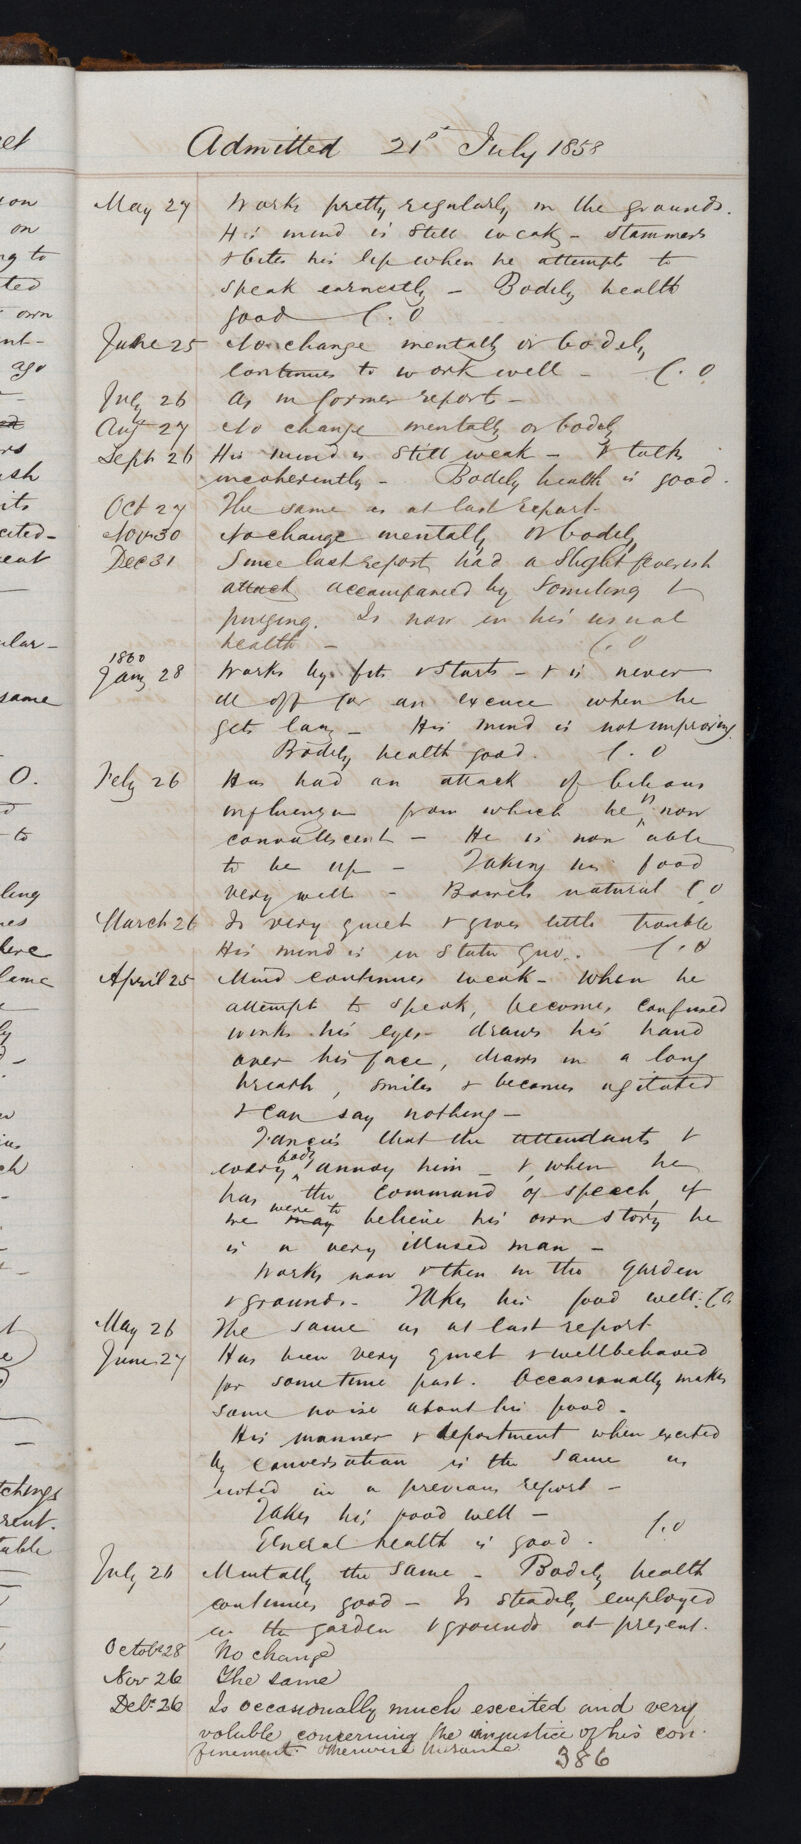 Admitted 21st July 1858
May 27 Works pretty regularly in the grounds.
His mind is still weak – stammers
& bites his lip when he attempts to
speak earnestly – Bodily health
good C.O
June 25 No change mentally or bodily,
continues to work well – C.O
July 26 As in former report –
Augt 27 No change mentally or bodily
Sept 26 His mind is still weak – & talks
incoherently – Bodily health is good.
Oct 27 The same as at last report.
Nov 30 No change mentally or bodily
Dec 31 Since last report had a slight feverish
attack accompanied by vomiting &
purging. Is now in his usual
health – C.O
1860
Jany 28 Works by fits & starts – & is never
ill off for an excuse when he
gets lazy – His mind is not improving.
Bodily health good. C.O
Feby 26 Has had an attack of bilious
influenza from which he is now
convallescent – He is now able
to be up – Taking his food
very well – Bowels natural C.O
March 26 Is very quiet & gives little trouble
His mind is in statu quo. C.O
April 25 Mind continues weak – When he
attempts to speak, becomes confused
winks his eyes – draws his hand
over his face, draws in a long
breath, smiles & becomes agitated
& can say nothing –
Fancies that the attendants &
every body annoy him – & when he
has the command of speech, if
we were to believe his own story he
is a very illused man –
Works now & then in the garden
& grounds. Takes his food well. C.O
May 26 The same as at last report
June 27 Has been very quiet & wellbehaved
for some time past. Occasionally makes
some noise about his food.
His manner & deportment when excited
by conversation is the same as
noted in a previous report –
Takes his food well –
General health is good. C.O
July 26 Mentally the same – Bodily health
continues good – Is steadily employed
in the garden & grounds at present.
Octobr 28 No change
Nov 26 The same
Decr 26 Is occasionally much excited and very
voluble concerning the injustice of his con-
finement. Otherwise the same
386